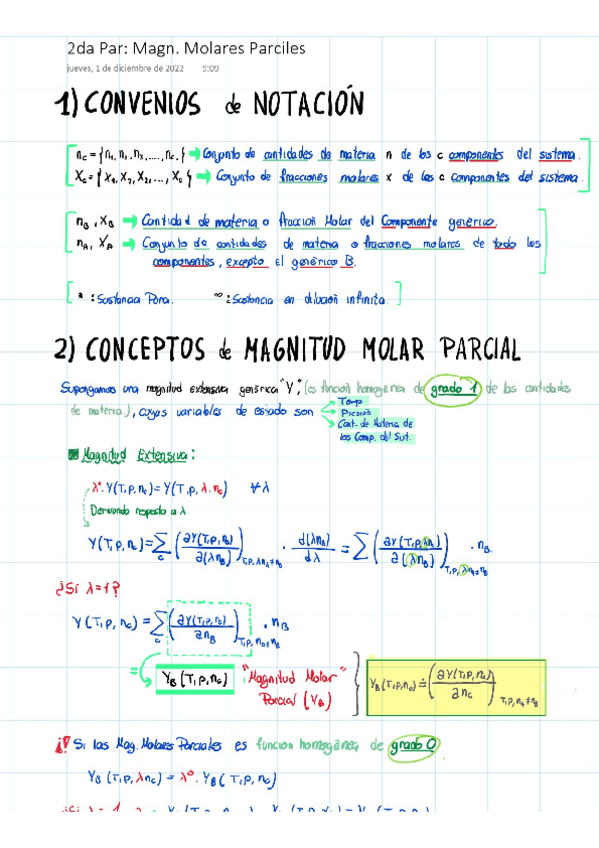 2da Par: Magn. Molares Parciles
jueves, 1 de diciembre de 2022 9:09
1) CONVENIOS de NOTACIÓN
n_c = {n₁, n₂, n₃, ..., n_c} → Conjunto de cantidades de materia n de los c componentes del sistema.
X_c = {x₁, x₂, x₃, ..., x_c} → Conjunto de fracciones molares x de los c componentes del sistema.
n_B, x_B → Cantidad de materia o fracción Molar del Componente genérico.
n_A, x_A → Conjunto de cantidades de materia o fracciones molares de todo los
componentes, excepto el genérico B.
* : Sustancia Pura. ∞ : Sustancia en dilución infinita.
2) CONCEPTOS de MAGNITUD MOLAR PARCIAL
Supongamos una magnitud extensiva genérica "Y", (es función homogénea de grado 1 de las cantidades
de materia), cuyas variables de estado son → Temp
→ Presión
→ Cant. de Materia de
los Comp. del Sist.
Magnitud Extensiva:
λ · Y(T, p, n_c) = Y(T, p, λ · n_c) ∀λ
Derivando respecto a λ
Y(T, p, n_c) = Σ_c (∂Y(T, p, n_c) / ∂(λn_B))_T, p, λn_A≠n_B · d(λn_B) / dλ = Σ (∂Y(T, p, λn_c) / ∂(λn_B))_T, p, λn_A≠n_B · n_B
¿Si λ=1?
Y(T, p, n_c) = Σ_c (∂Y(T, p, n_c) / ∂n_B)_T, p, n_A≠n_B · n_B
Y_B(T, p, n_c) "Magnitud Molar
Parcial (Y_B)
Y_B(T, p, n_c) ≐ (∂Y(T, p, n_c) / ∂n_c)_T, p, n_A≠n_B
¿? Si las Mag. Molares Parciales es función homogénea de grado 0
Y_B(T, p, λn_c) = λ⁰ · Y_B(T, p, n_c)